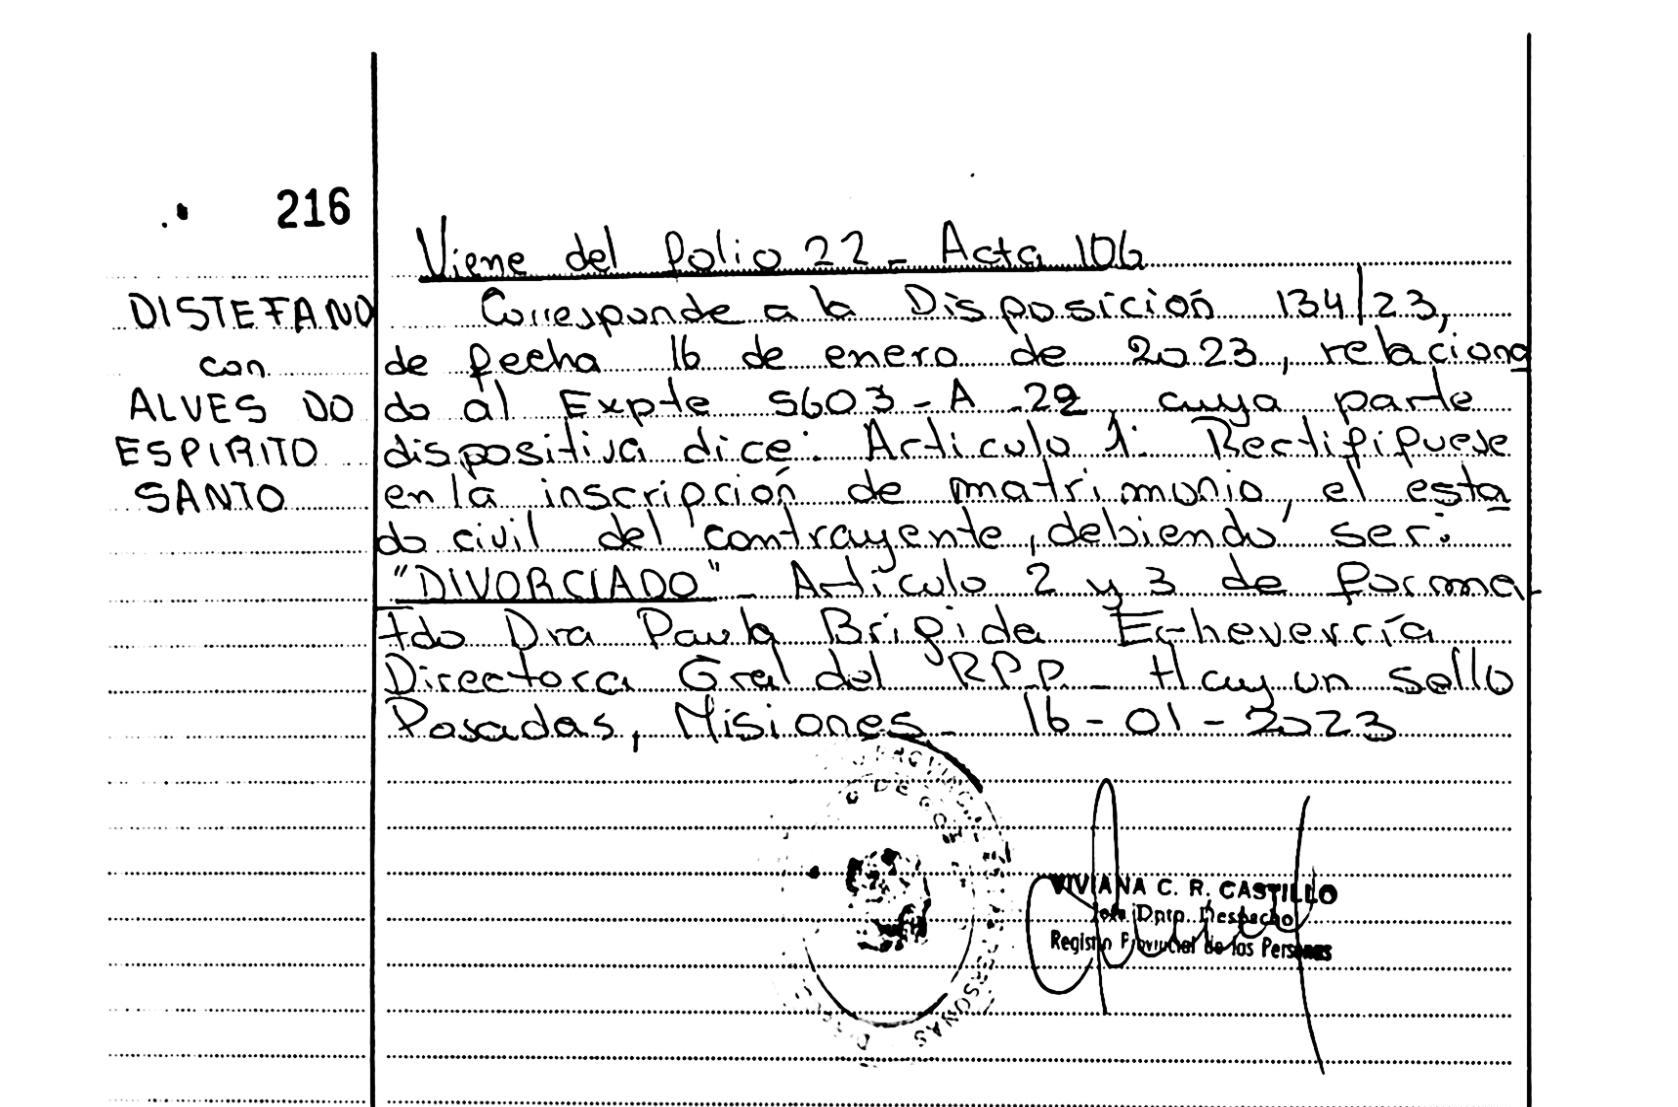 216
Viene del folio 22 - Acta 106
DISTEFANO
con
ALVES DO
ESPIRITO
SANTO
Corresponde a la Disposición 134/23,
de fecha 16 de enero de 2023, relaciona
do al Expte 5603-A-22, cuya parte
dispositiva dice: Articulo 1: Rectifiquese
en la inscripción de matrimonio, el esta
do civil del contrayente, debiendo ser:
"DIVORCIADO" - Articulo 2 y 3 de forma-
Fdo Dra Paula Brigida Echeverría
Directora Gral del RPP - Hay un sello
Posadas, Misiones - 16-01-2023
VIVIANA C. R. CASTILLO
Jefe Dpto. Despacho
Registro Provincial de las Personas